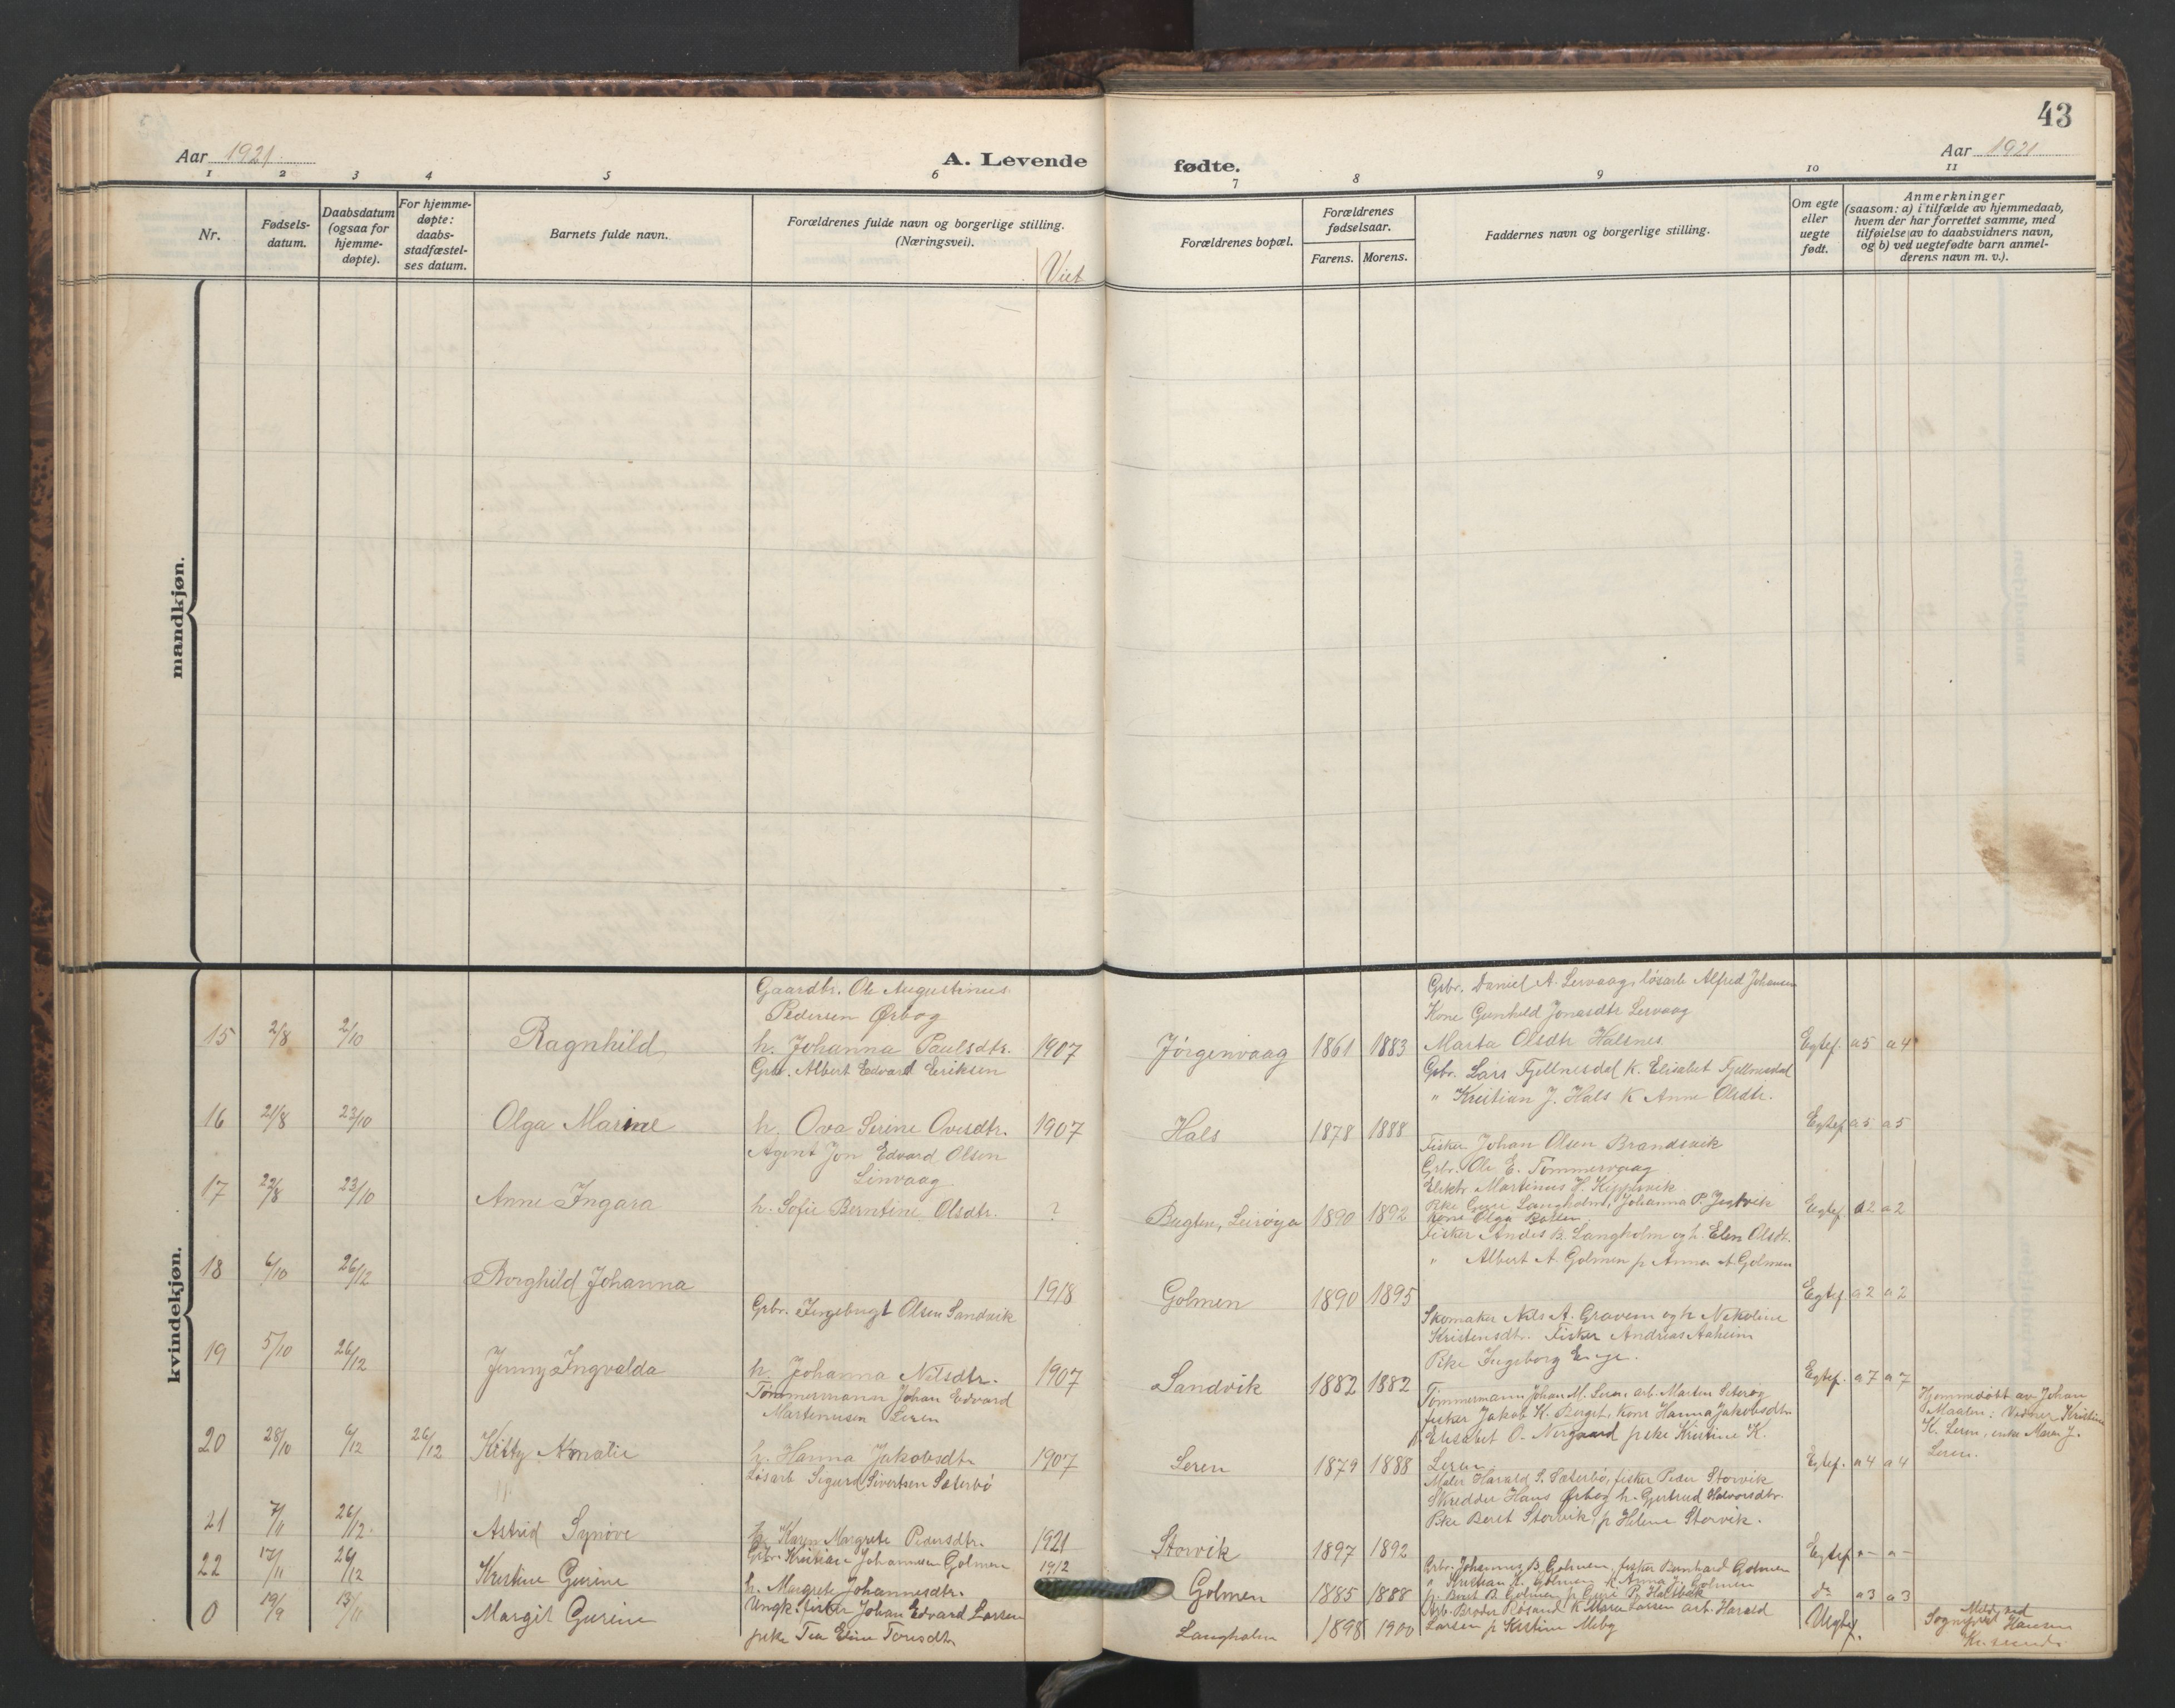 43
Aar 1921
A. Levende fødte.
Aar 1921
1 2 3 4 5 6 7 8 9 10 11
Nr.
Fødsels-
datum.
Daabsdatum
(ogsaa for
hjemme-
døpte).
For hjemme-
døpte:
daabs-
stadfæstel-
ses datum.
Barnets fulde navn.
Forældrenes fulde navn og borgerlige stilling.
(Næringsvei).
Viet
Forældrenes bopæl.
Forældrenes
fødselsaar.
Farens. Morens.
Faddernes navn og borgerlige stilling.
Om egte
eller
uegte
født.
Anmerkninger
(saasom: a) i tilfælde av hjemmedaab,
hvem der har forrettet samme, med
tilføielse av to daabsvidners navn,
og b) ved uegtefødte barn anmel-
derens navn m. v.).
mandkjøn.
kvindekjøn.
15 2/8 2/10 Ragnhild
Gaardbr. Ole Augustinus
Pedersen Ørbog
h. Johanna Paulsdtr. 1907
Jørgenvaag 1861 1883
Grbr. Daniel A. Lervaag, løsarb Alfred Johansen
Kone Gunhild Jonasdtr Lervaag
Marta Olsdtr Halsnes
Egtef. a5 a4
16 21/8 23/10 Olga Marine
Grbr. Albert Edvard Eriksen
h. Ova Serine Ovesdtr. 1907
Hals 1878 1888
Grbr. Lars Fjellnesdal K. Elisabet Fjellnesdal
" Kristian J. Hals K Anne Olsdtr.
Egtef a5 a5
17 22/8 23/10 Anne Ingara
Agent Jon Edvard Olsen
Linvaag
h. Sofie Berntine Olsdtr. ?
Bugten, Leirøya 1890 1892
Fisker Johan Olsen Brandsvik
Grbr. Ole E. Tømmervaag
Elektr Martinus H.
Pike Guri Langholm, Johanna P.
Kone Olga
Egtef. a2 a2
18 6/10 26/12 Borghild Johanna
1918
Golmen 1890 1895
Fisker Andes B. Langholm og h. Elen Olsdt.
" Albert A. Golmen p Anna A Golmen
Egtef a2 a2
19 5/10 26/12 Jenny Ingvalda
Grbr. Ingebrigt Olsen Sandvik
h. Johanna Nilsdtr. 1907
Sandvik 1882 1882
Skomaker Nils A. Gravem og h Nekoline
Kristensdtr. Fisker Andreas Aaheim
Pike Ingeborg Enge.
Egtef. a7 a7
20 28/10 6/12 26/12 Kitty Amalie
Tømmermann Johan Edvard
Martinusen Leren
h. Hanna Jakobsdtr 1907
Leren 1879 1888
Tømmermann Johan M. Leren, arb. Marten Seterøy
fisker Jakob K. Berget, Kone Hanna Jakobsdtr
p. Elisabet O. Nergaard pike Kristine K.
Leren
Egtef. a4 a4
Hjemmedøbt av Johan
Maalen: Vidner Kristine
K. Leren, enke Maren J.
Leren.
21 7/11 26/12. Astrid Synøve
Løsarb Sigurd Sivertsen Sæterbø
h. Karen Margrete Pedersdtr. 1921
Storvik 1897 1892
Maler Harald S. Sæterbø, fisker Peder Storvik
Skredder Hans Ørbog h. Gjertrud Halvorsdtr.
Pike Beret Storvik, p Helene Storvik.
Egtef a– a–
22 17/11 26/12 Kristine Gurine
Grbr. Kristian Johannesen Golmen
h. Margrete Johannesdtr. 1912
Golmen 1885 1888
Grbr. Johannes B. Golmen, fisker Bernhard Golmen
" Kristian K. Golmen, K Anna J. Golmen
p. Beret B. Golmen p Guri P. Halsbæk
do a3 a3
0 19/9 13/11 Margit Gurine
Ungk. fisker Johan Edvard Larsen
pike Tea Eline Toresdtr
Langholm 1898 1900
Arb. Broder Røsand K Maren Larsen arb. Harald
Larsen p Kristine Meby
Uegtef.
Meldt ved
Sognepr. Hansen